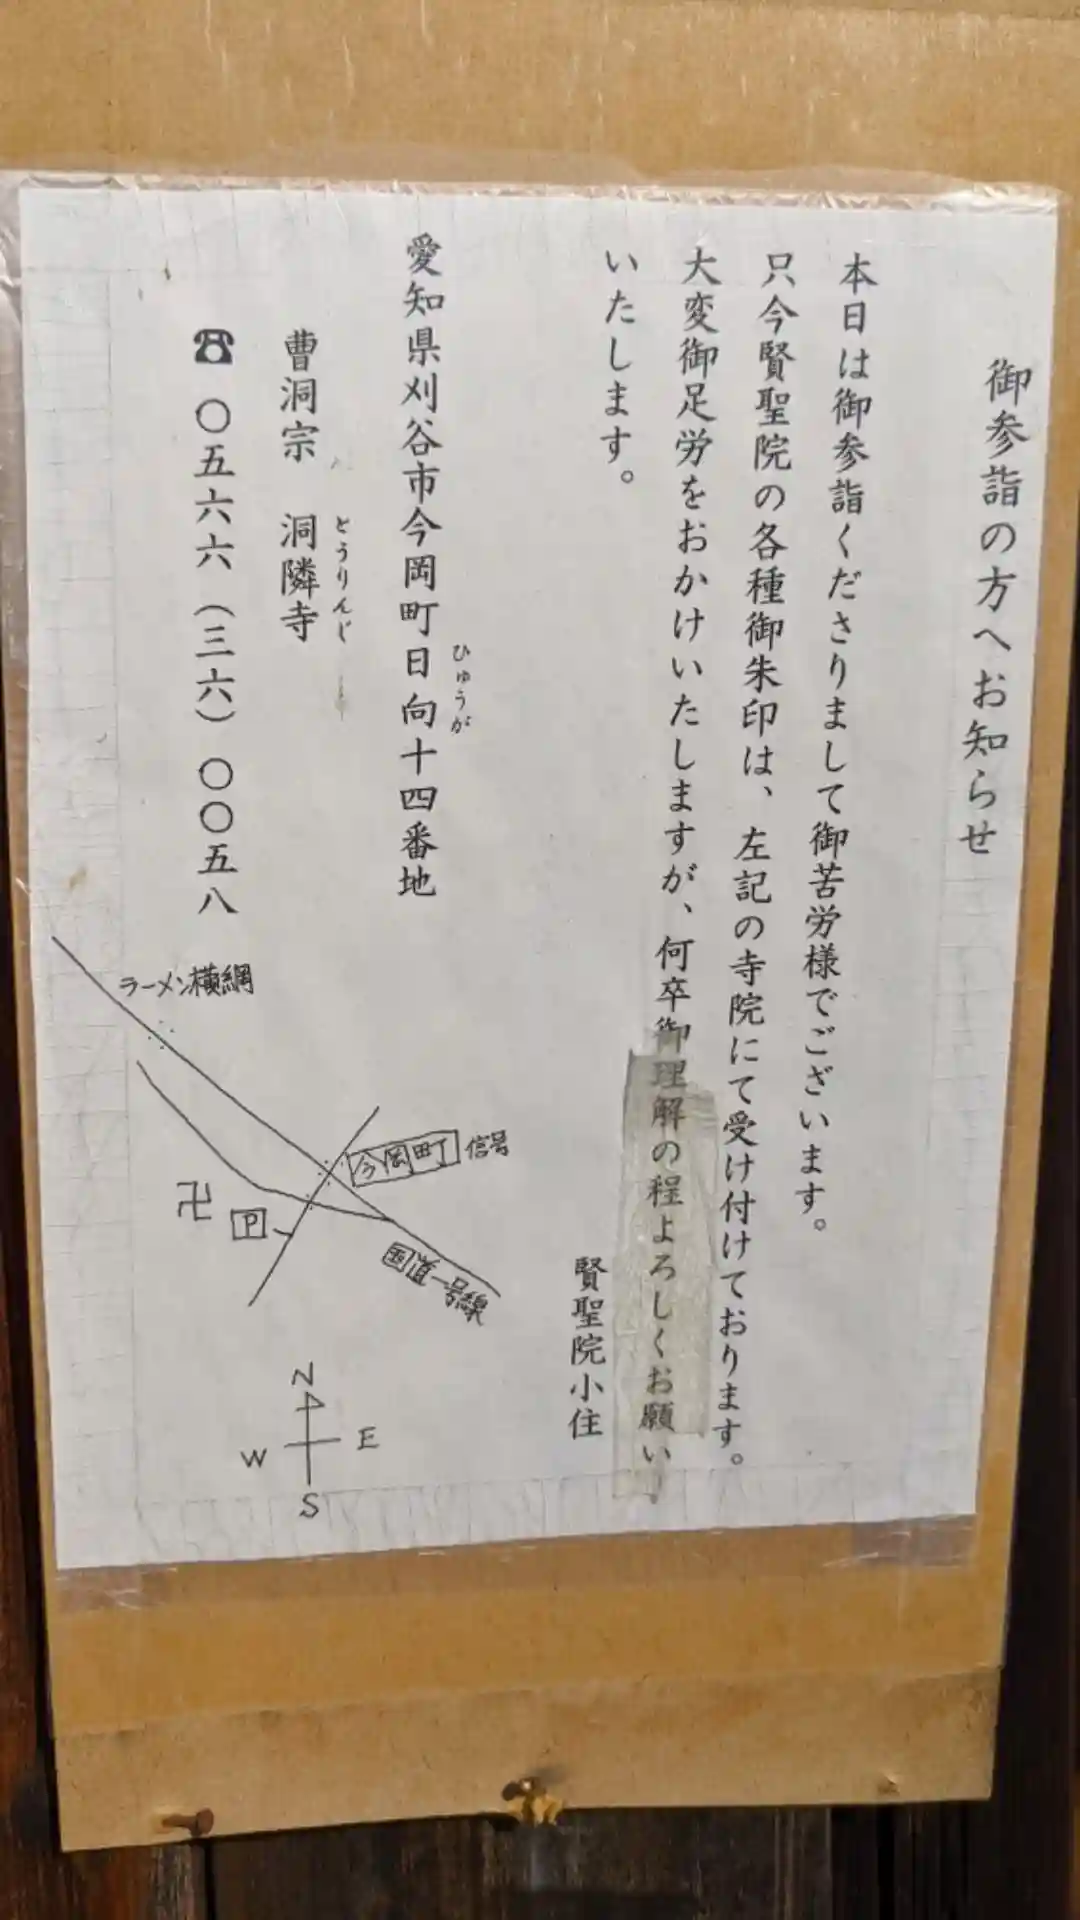 御参詣の方へお知らせ
本日は御参詣くださりまして御苦労様でございます。
只今賢聖院の各種御朱印は、左記の寺院にて受け付けております。
大変御足労をおかけいたしますが、何卒御理解の程よろしくお願い
いたします。
賢聖院小住
愛知県刈谷市今岡町日向十四番地
ひゅうが
曹洞宗 洞隣寺
とうりんじ
☎ 〇五六六(三六)〇〇五八
ラーメン横綱
今岡町 信号
卍 P
国道一号線
N
W E
S